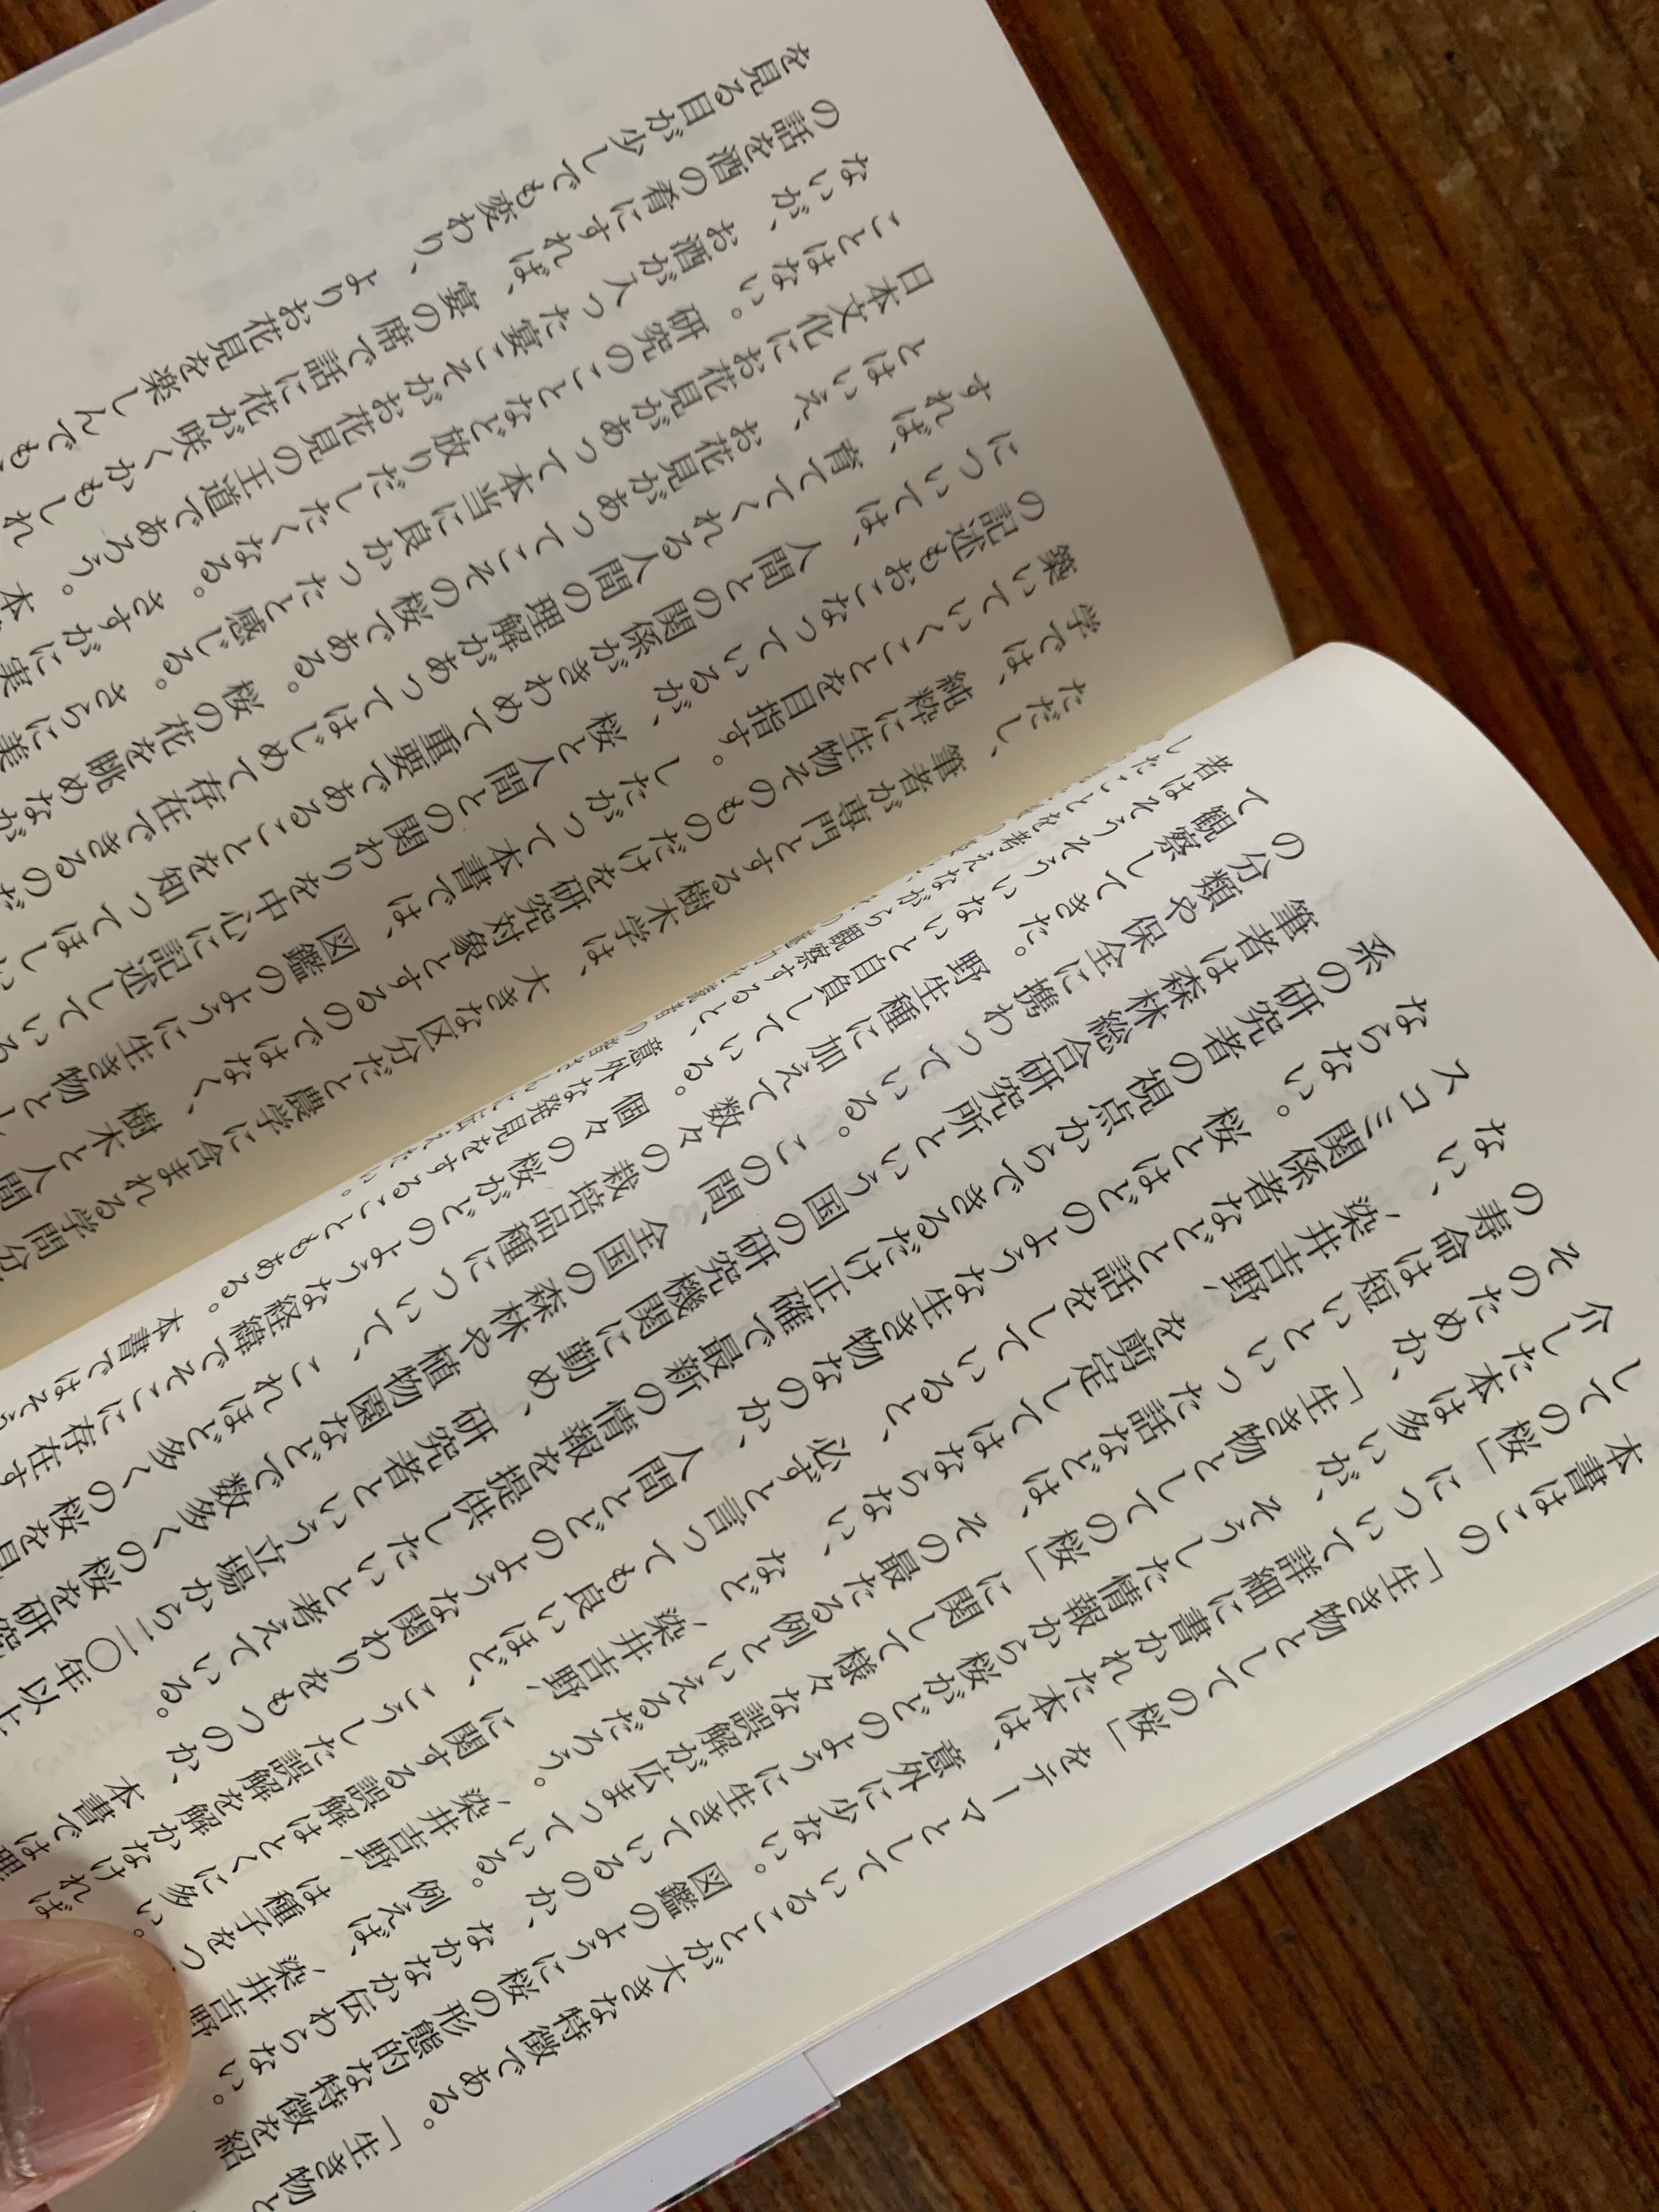 本書はこの「生き物としての桜」をテーマとしていることが大きな特徴である。「生き物と
しての桜」について詳細に書かれた本は、意外に少ない。図鑑のように桜の形態的な特徴を紹
介した本は多いが、そうした情報から桜がどのように生きているのか、なかなか伝わらない。
そのためか、「生き物としての桜」に関して様々な誤解が広まっている。例えば、染井吉野
の寿命は短いといった話などは、その最たる例といえるだろう。染井吉野は種子をつ
ない、染井吉野を剪定してはならない、など、染井吉野に関する誤解はとくに多い。
スコミ関係者などと話をしていると、必ずと言っても良いほど、こうした誤解を解かなければ
ならない。桜とはどのような生き物なのか、人間とどのような関わりをもつのか、本書では理
系の研究者の視点からできるだけ正確で最新の情報を提供したいと考えている。
筆者は森林総合研究所という国の研究機関に勤め、研究者という立場から二〇年以上
の分類や保全に携わっている。この間、全国の森林や植物園などで数多くの桜を研究
て観察してきた。野生種に加えて数々の栽培品種について、これほど多くの桜を見
者はそうそういないと自負している。個々の桜がどのような経緯でそこに存在す
したいことを考えながら観察すると、意外な発見をすることもある。本書ではそう
ただし、筆者が専門とする樹木学は、大きな区分だと農学に含まれる学問分
学では、純粋に生物そのものだけを研究対象とするのではなく、樹木と人間
築いていくことを目指す。したがって本書では、図鑑のように生き物とし
の記述もおこなっているが、桜と人間との関わりを中心に記述している
については、人間との関係がきわめて重要であることを知ってほしい
すれば、育ててくれる人間の理解があってはじめて存在できるのだ
とはいえ、お花見があってこその桜である。桜の花を眺めなが
日本文化にお花見があって本当に良かったと感じる。さらに美
ことはない。研究のことなど放りだしたくなる。さすがに実
ないが、お酒が入った宴こそがお花見の王道であろう。本
の話を酒の肴にすれば、宴の席で話に花が咲くかもしれ
を見る目が少しでも変わり、よりお花見を楽しんでも